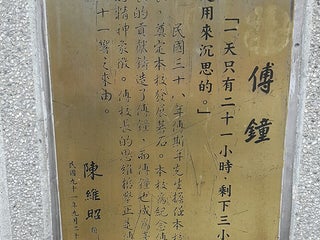 傅鐘
「一天只有二十一小時，剩下三小
用來沉思的。」
民國三十八年傅斯年先生擔任本校
、奠定本校發展基石。本校為紀念傅
的貢獻鑄造了傅鐘，而傅鐘也成為
的精神象徵。傅校長的思維哲學正是傅
十一響之來由。
陳維昭
民國九十一年九月二十